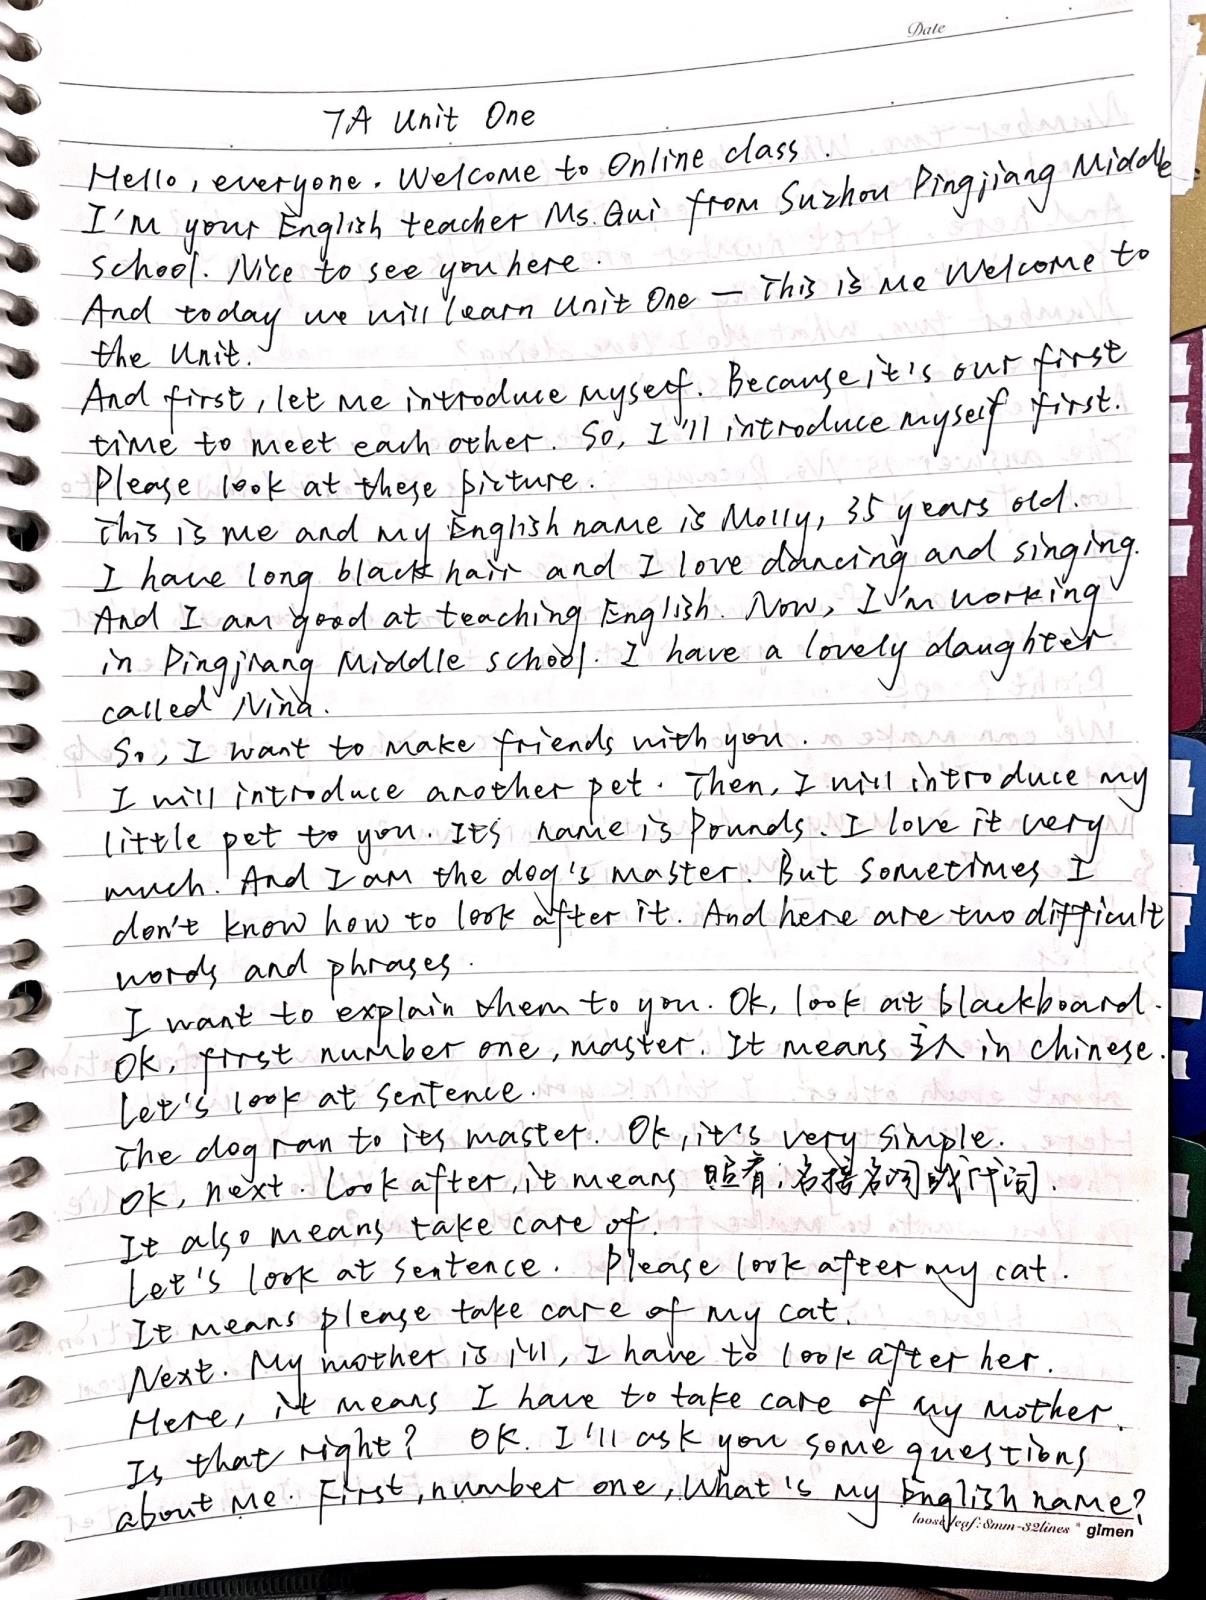 Date
7A Unit One
Hello, everyone. Welcome to Online class.
I'm your English teacher Ms. Gui from Suzhou Pingjiang Middle
school. Nice to see you here.
And today we will learn Unit One — This is me Welcome to
the Unit.
And first, let me introduce myself. Because it's our first
time to meet each other. So, I'll introduce myself first.
Please look at these picture.
This is me and my English name is Molly, 35 years old.
I have long black hair and I love dancing and singing.
And I am good at teaching English. Now, I'm working
in Pingjiang Middle school. I have a lovely daughter
called Nina.
So, I want to make friends with you.
I will introduce another pet. Then, I will introduce my
little pet to you. Its name is Pounds. I love it very
much. And I am the dog's master. But sometimes I
don't know how to look after it. And here are two difficult
words and phrases.
I want to explain them to you. Ok, look at blackboard.
Ok, first number one, master. It means 主人 in chinese.
Let's look at sentence.
The dog ran to its master. Ok, it's very simple.
Ok, next. Look after, it means 照看; 后接名词或代词.
It also means take care of.
Let's look at sentence. Please look after my cat.
It means please take care of my cat.
Next. My mother is ill, I have to look after her.
Here, it means I have to take care of my mother.
Is that right? OK. I'll ask you some questions
about me. First, number one, What's my English name?
loose leaf: 8mm-32lines * glmen